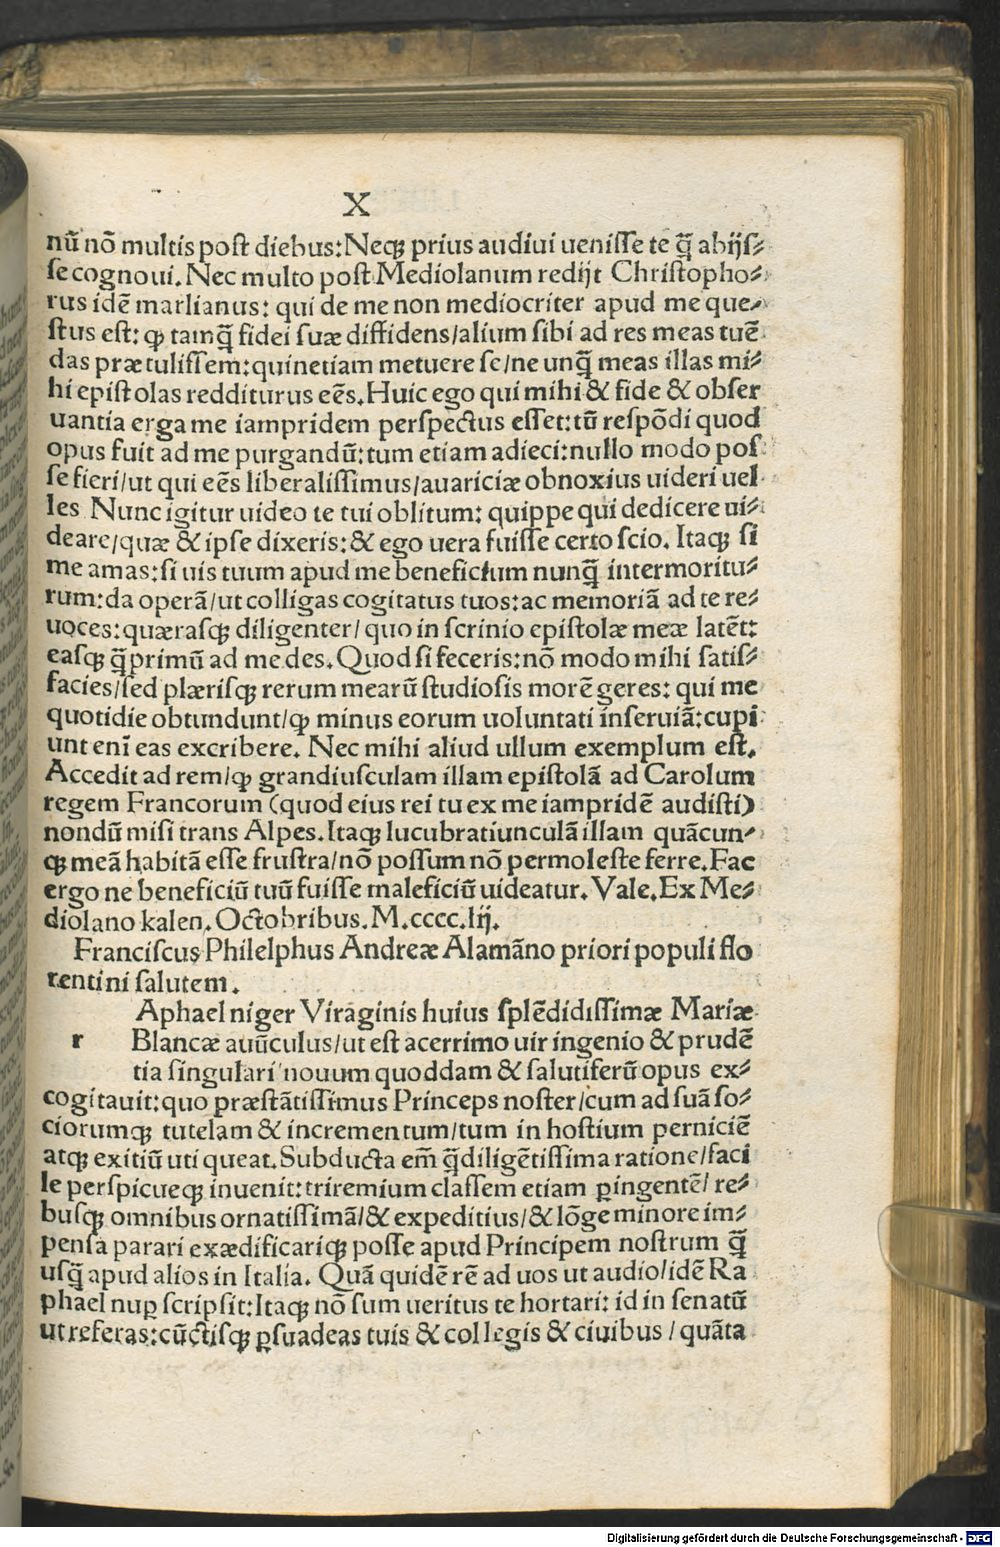 X
nū nō multis post diebus: Neqꝫ prius audiui uenisse te q̄̄ abijs⸗
se cognoui. Nec multo post Mediolanum redijt Christopho⸗
rus idē marlianus: qui de me non mediocriter apud me que⸗
stus est: ꝙ tamq̄̄ fidei suæ diffidens/alium sibi ad res meas tuē
das prætulissem: quinetiam metuere se/ne unq̄̄ meas illas mi⸗
hi epistolas redditurus eēs. Huic ego qui mihi & fide & obser
uantia erga me iampridem perspectus esset: tū respōdi quod
opus fuit ad me purgandū: tum etiam adieci: nullo modo pos
se fieri/ut qui eēs liberalissimus/auariciæ obnoxius uideri uel
les Nunc igitur uideo te tui oblitum: quippe qui dedicere ui⸗
deare/quæ & ipse dixeris: & ego uera fuisse certo scio. Itaqꝫ si
me amas: si uis tuum apud me beneficium nunq̄̄ intermoritu⸗
rum: da operā/ut colligas cogitatus tuos: ac memoriā ad te re⸗
uoces: quærasqꝫ diligenter/quo in scrinio epistolæ meæ latēt:
easqꝫ q̄̄primū ad me des. Quod si feceris: nō modo mihi satis⸗
facies/sed plærisqꝫ rerum mearū studiosis morē geres: qui me
quotidie obtundunt/ꝙ minus eorum uoluntati inseruiā: cupi
unt enī eas excribere. Nec mihi aliud ullum exemplum est.
Accedit ad rem/ꝙ grandiusculam illam epistolā ad Carolum
regem Francorum (quod eius rei tu ex me iampridē audisti)
nondū misi trans Alpes. Itaqꝫ lucubratiunculā illam quācun⸗
qꝫ meā habitā esse frustra/nō possum nō permoleste ferre. Fac
ergo ne beneficiū tuū fuisse maleficiū uideatur. Vale. Ex Me⸗
diolano kalen. Octobribus. M.cccc.lij.
Franciscus Philelphus Andreæ Alamāno priori populi flo
rentini salutem.
Aphael niger Viraginis huius splēdidissimæ Mariæ
r Blancæ auūculus/ut est acerrimo uir ingenio & prudē
tia singulari nouum quoddam & salutiferū opus ex⸗
cogitauit: quo præstātissimus Princeps noster/cum ad suā so⸗
ciorumqꝫ tutelam & incrementum/tum in hostium perniciē
atqꝫ exitiū uti queat. Subducta em̄ q̄̄diligētissima ratione/faci
le perspicueqꝫ inuenit: triremium classem etiam ꝑingentē/re⸗
busqꝫ omnibus ornatissimā/& expeditius/& lōge minore im⸗
pensa parari exædificariqꝫ posse apud Principem nostrum q̄̄
usq̄̄ apud alios in Italia. Quā quidē rē ad uos ut audio/idē Ra
phael nuꝑ scripsit: Itaqꝫ nō sum ueritus te hortari: id in senatū
ut referas: cūctisqꝫ ꝑsuadeas tuis & collegis & ciuibus/quāta
Digitalisierung gefördert durch die Deutsche Forschungsgemeinschaft - DFG